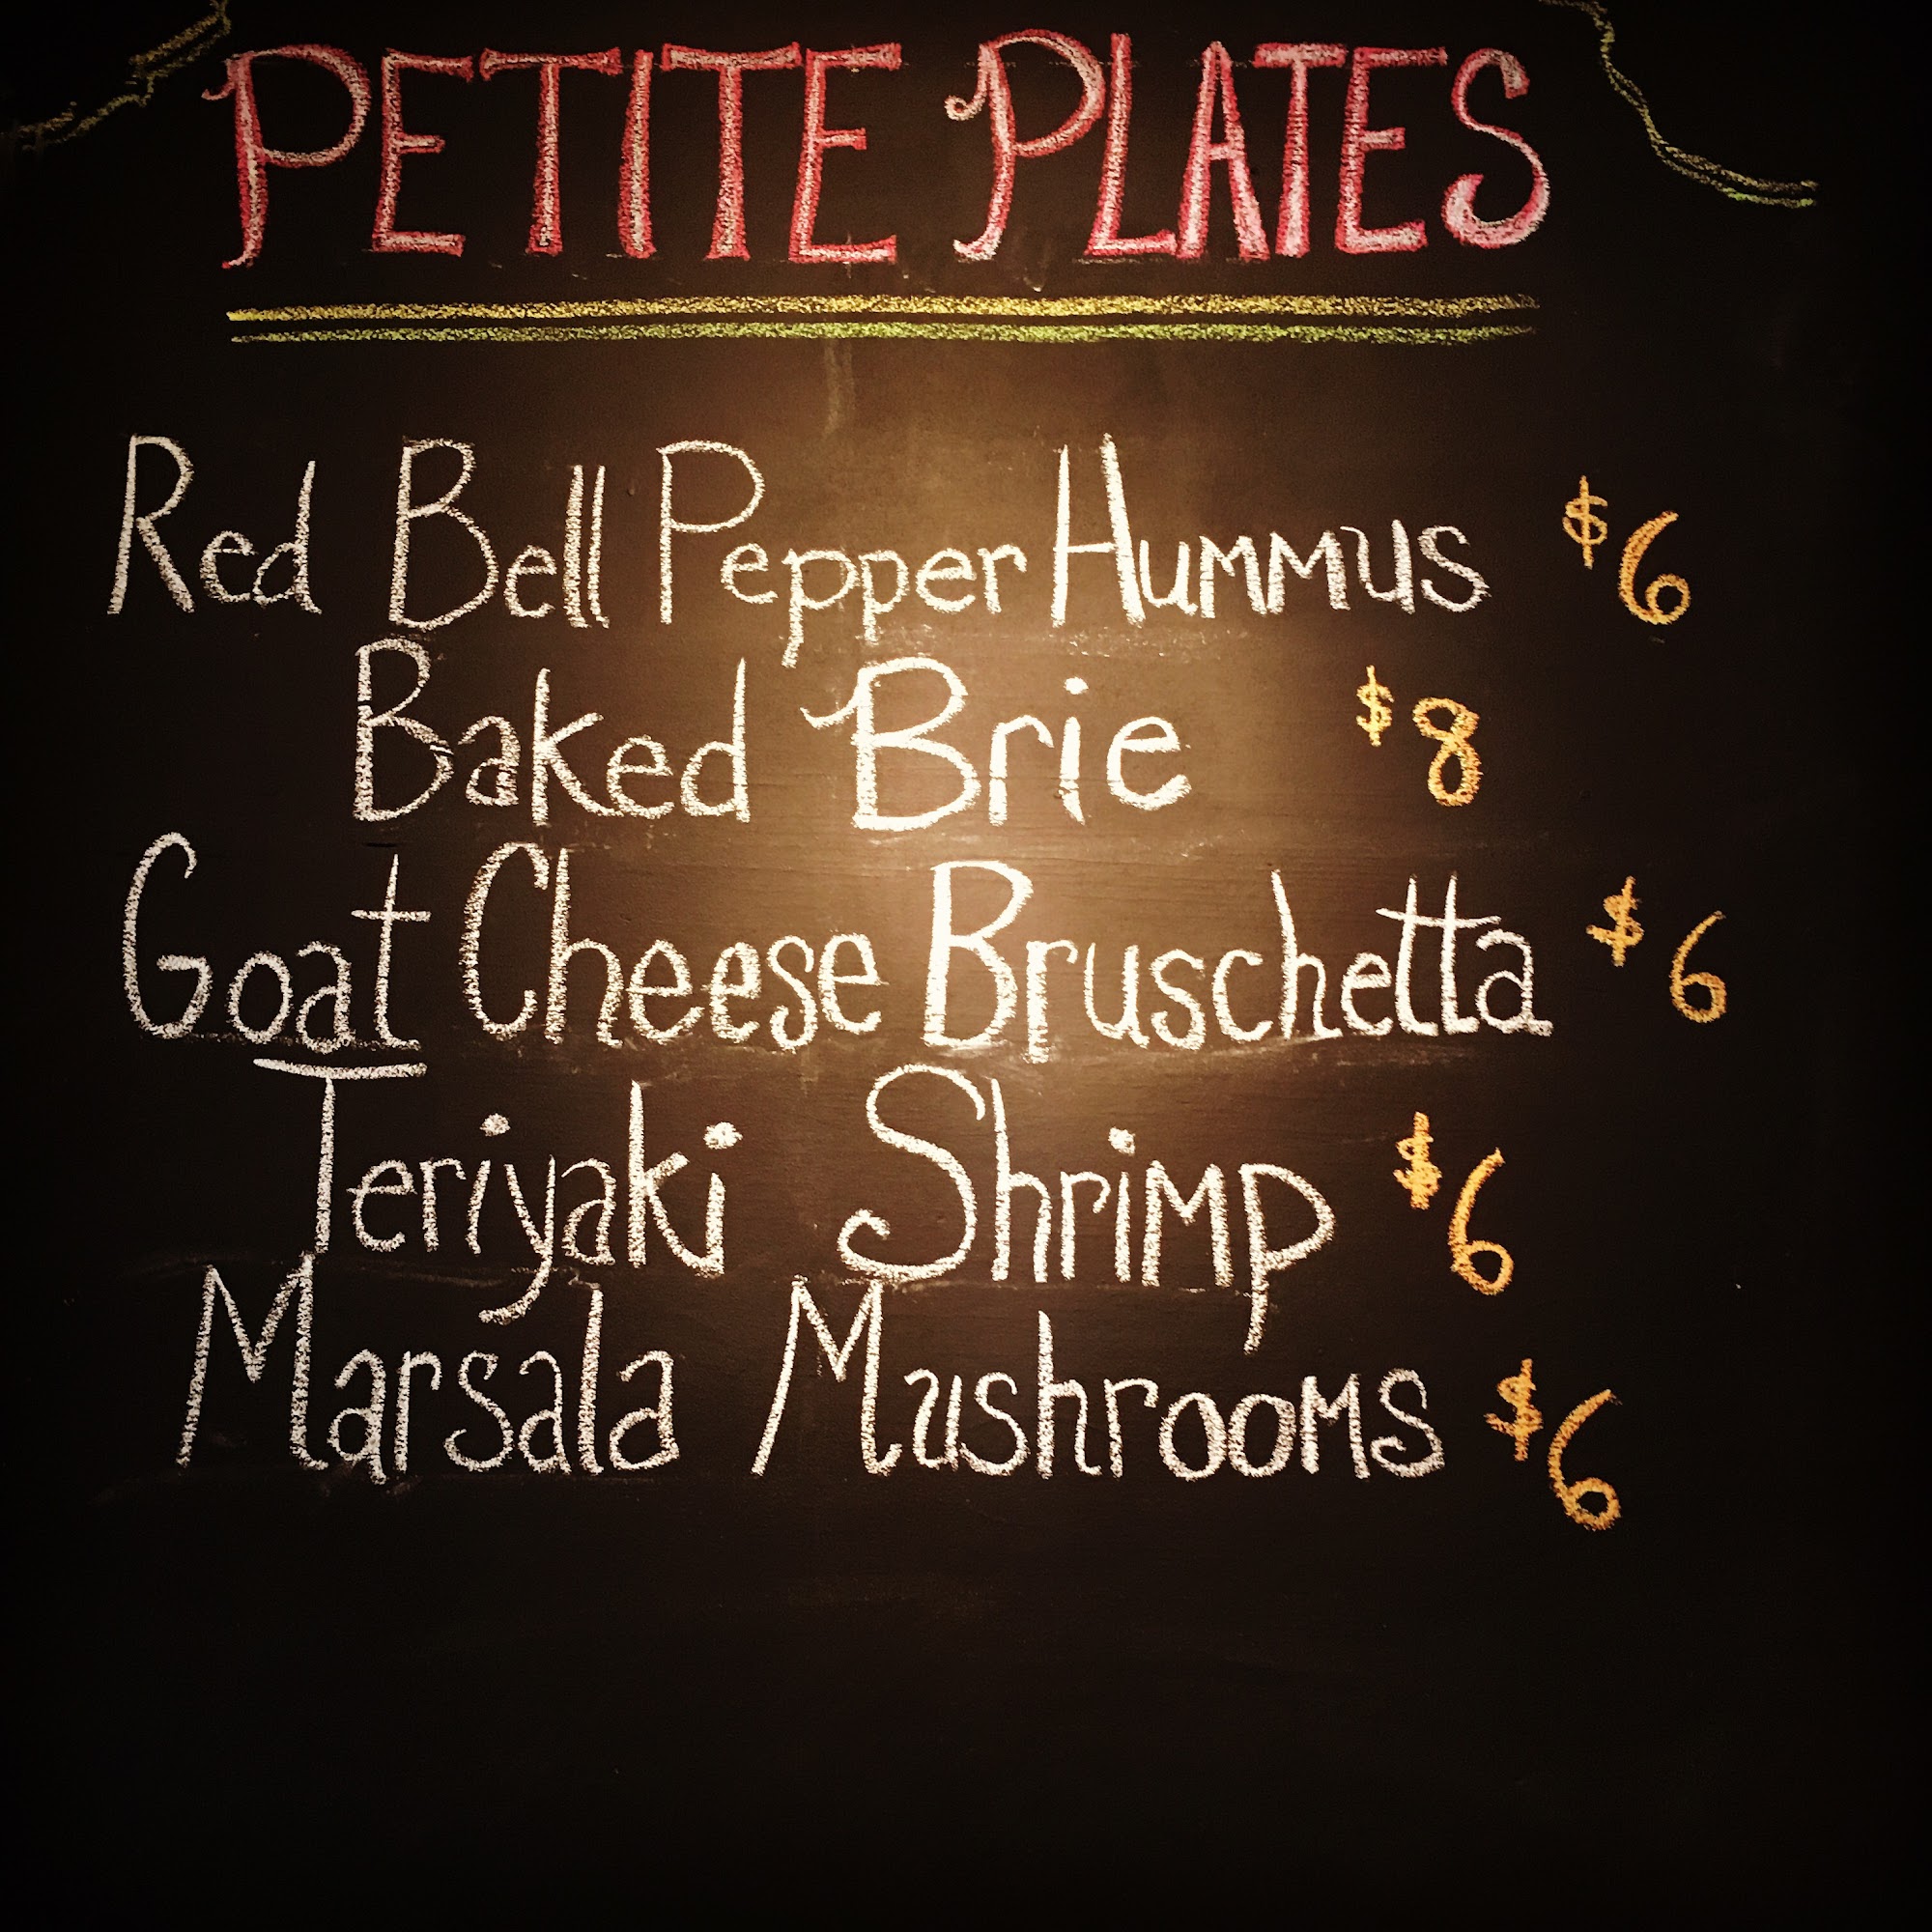 PETITE PLATES
Red Bell Pepper Hummus $6
Baked Brie $8
Goat Cheese Bruschetta $6
Teriyaki Shrimp $6
Marsala Mushrooms $6